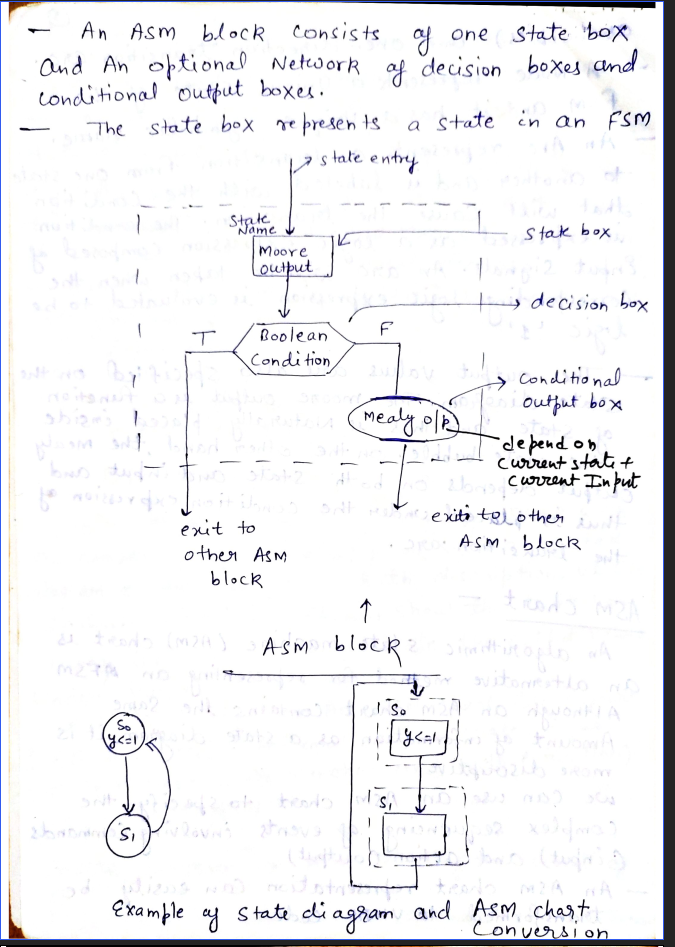 — An ASM block consists of one state box
and An optional Network of decision boxes and
conditional output boxes.
— The state box represents a state in an FSM
state entry
State
Name
Moore
output
State box
decision box
T
Boolean
Condition
F
Conditional
output box
Mealy o/p
depend on
current state +
current Input
exit to
other ASM
block
exit to other
ASM block
ASM block
S0
y<=1
S1
S0
y<=1
S1
Example of state diagram and ASM chart
Conversion